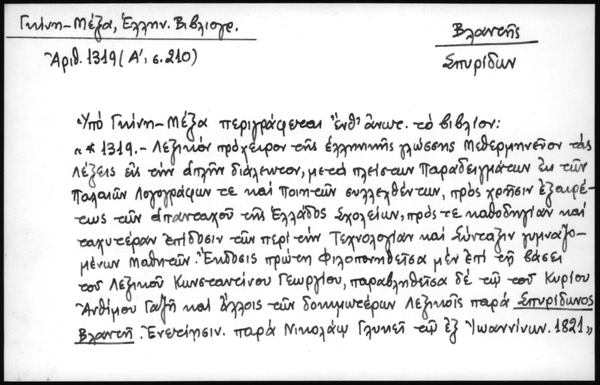 Γκίνη-Μέξα, Ἑλλην. Βιβλιογρ.
Βλαντῆς
Ἀριθ. 1319 (Α', σ. 210)
Σπυρίδων
Ὑπό Γκίνη-Μέξα περιγράφεται ἐνθ' ἀνωτ. τό βιβλίον:
«* 1319.- Λεξικόν πρόχειρον τῆς ἑλληνικῆς γλώσσης Μεθερμηνεῦον τάς
λέξεις εἰς τήν ἁπλῆν διάλεκτον, μετά πλείστων Παραδειγμάτων ἐκ τῶν
Παλαιῶν Λογογράφων τε καί ποιητῶν συλλεχθέντων, πρός χρῆσιν ἐξαιρέ-
τως τῶν ἁπανταχοῦ τῆς Ἑλλάδος Σχολείων, πρός τε καθοδηγίαν καί
ταχυτέραν ἐπίδοσιν τῶν περί τήν Τεχνολογίαν καί Σύνταξιν γυμναζο-
μένων Μαθητῶν. Ἔκδοσις πρώτη Φιλοπονηθεῖσα μέν ἐπί τῇ βάσει
τοῦ Λεξικοῦ Κωνσταντίνου Γεωργίου, παραβληθεῖσα δέ τῷ τοῦ Κυρίου
Ἀνθίμου Γαζῆ καί ἄλλοις τῶν δοκιμωτέρων Λεξικοῖς παρά Σπυρίδωνος
Βλαντῆ. Ἐνετίησιν. παρά Νικολάῳ Γλυκεῖ τῷ ἐξ Ἰωαννίνων. 1821»